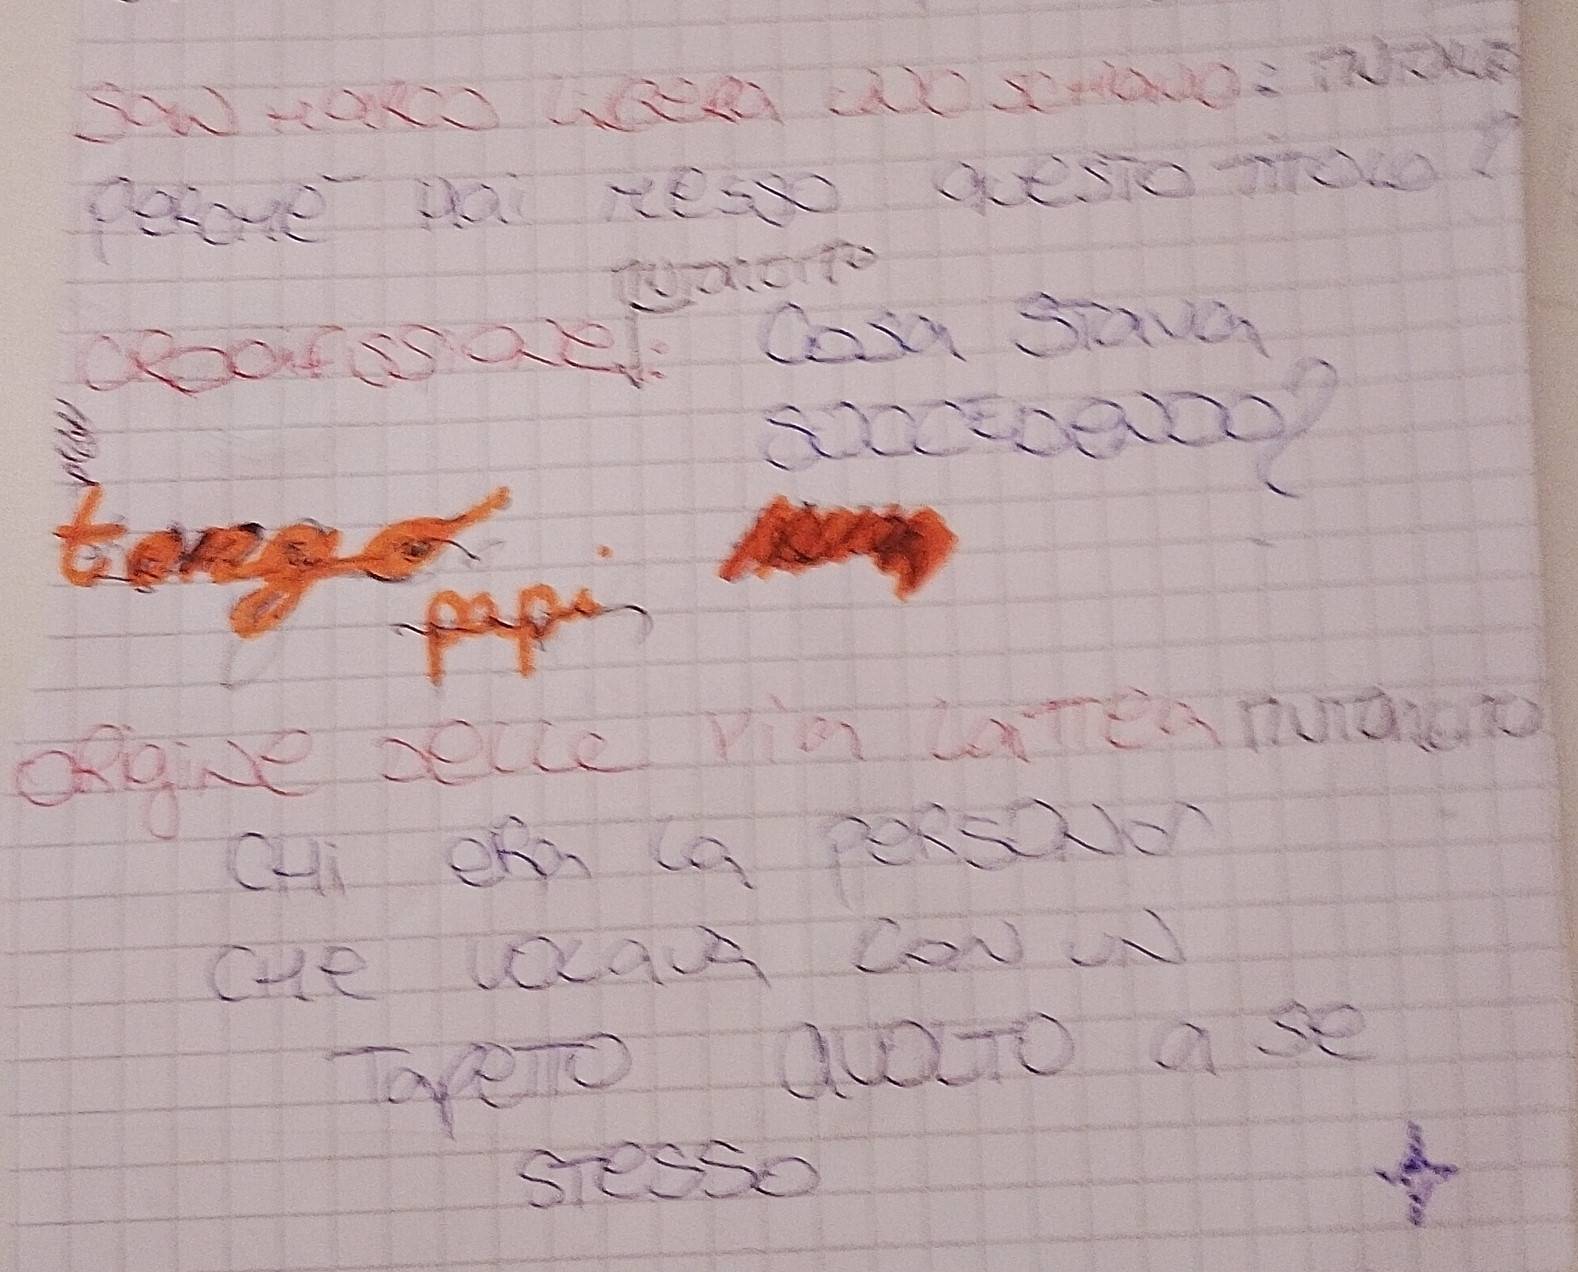 SAN MARCO LIBERA UNO SCHIAVO:
PERCHÉ HAI MESSO QUESTO TITOLO?
TINTORETTO
CROCIFISSIONE: COSA STAVA
SUCCEDENDO?
papi
ORIGINE DELLE VIA LATTEA
CHI ERA LA PERSONA
CHE VOLAVA CON UN
TAPETTO AVOLTO A SE
STESSO